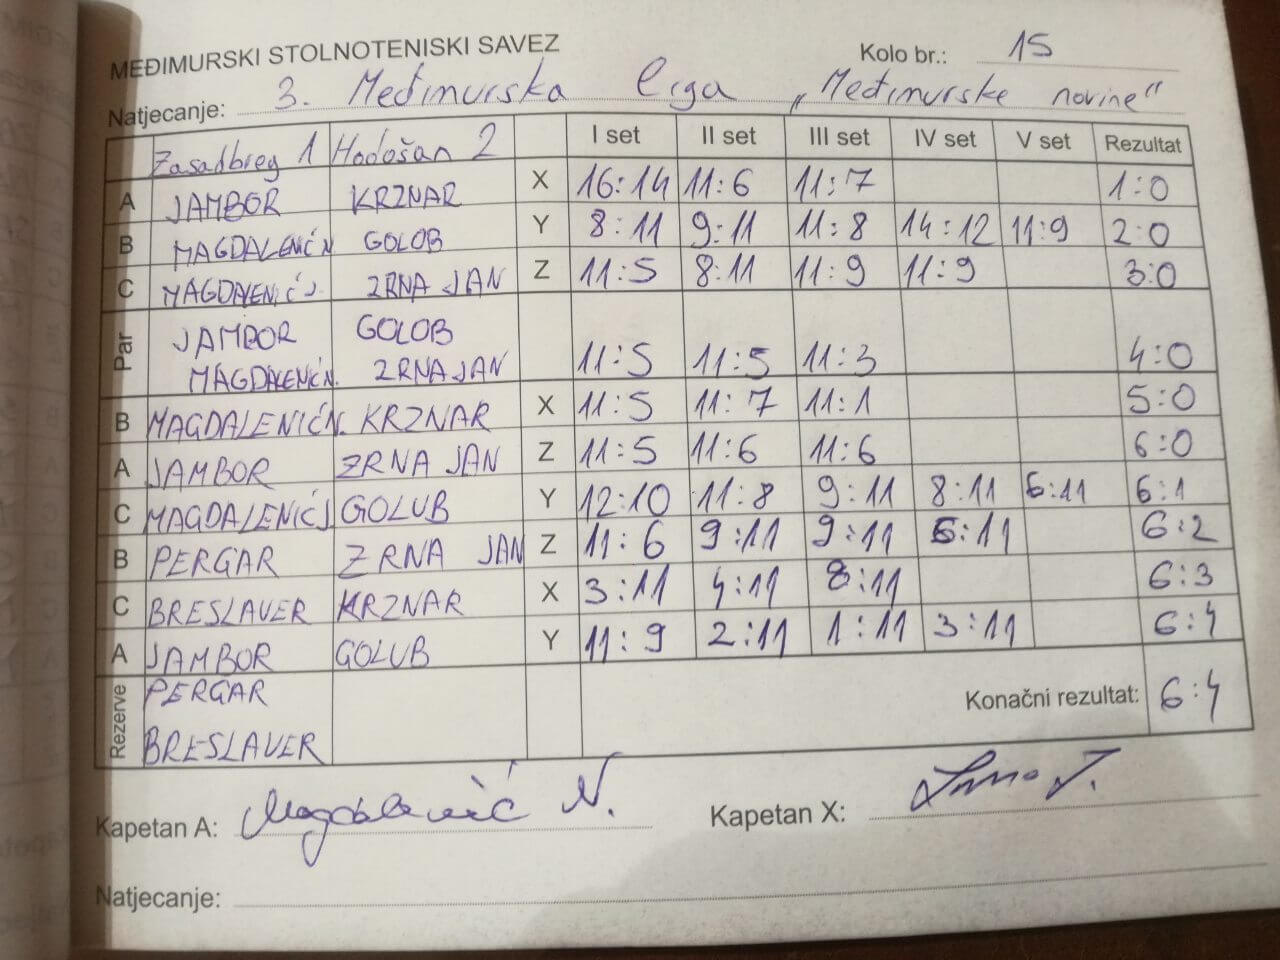 MEĐIMURSKI STOLNOTENISKI SAVEZ
Kolo br.: 15
Natjecanje: 3. Međimurska liga „Međimurske novine"
Zasadbreg 1 Hodošan 2 I set II set III set IV set V set Rezultat
A JAMBOR KRZNAR X 16:14 11:6 11:7 1:0
B MAGDALENIĆ N GOLOB Y 8:11 9:11 11:8 14:12 11:9 2:0
C MAGDALENIĆ J. ZRNA JAN Z 11:5 8:11 11:9 11:9 3:0
Par JAMBOR GOLOB
MAGDALENIĆ N. ZRNA JAN 11:5 11:5 11:3 4:0
B MAGDALENIĆ N. KRZNAR X 11:5 11:7 11:1 5:0
A JAMBOR ZRNA JAN Z 11:5 11:6 11:6 6:0
C MAGDALENIĆ J GOLUB Y 12:10 11:8 9:11 8:11 6:11 6:1
B PERGAR ZRNA JAN Z 11:6 9:11 9:11 6:11 6:2
C BRESLAVER KRZNAR X 3:11 4:11 8:11 6:3
A JAMBOR GOLUB Y 11:9 2:11 1:11 3:11 6:4
Rezerve PERGAR
BRESLAVER
Konačni rezultat: 6:4
Kapetan A: Magdalenić N.
Kapetan X:
Natjecanje: